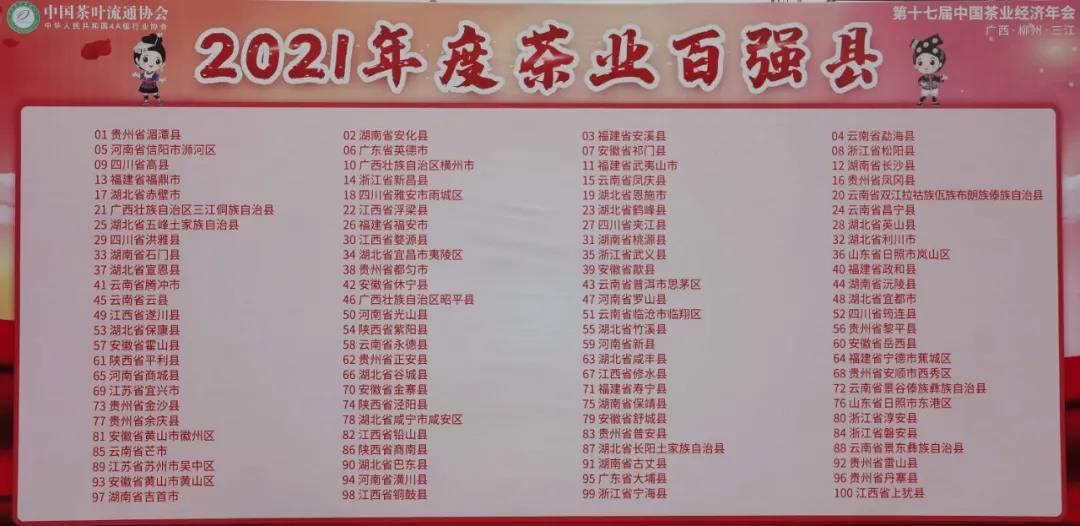 中国茶叶流通协会
中华人民共和国4A级行业协会
第十七届中国茶业经济年会
广西·柳州·三江
2021年度茶业百强县
01 贵州省湄潭县 02 湖南省安化县 03 福建省安溪县 04 云南省勐海县
05 河南省信阳市浉河区 06 广东省英德市 07 安徽省祁门县 08 浙江省松阳县
09 四川省高县 10 广西壮族自治区横州市 11 福建省武夷山市 12 湖南省长沙县
13 福建省福鼎市 14 浙江省新昌县 15 云南省凤庆县 16 贵州省凤冈县
17 湖北省赤壁市 18 四川省雅安市雨城区 19 湖北省恩施市 20 云南省双江拉祜族佤族布朗族傣族自治县
21 广西壮族自治区三江侗族自治县 22 江西省浮梁县 23 湖北省鹤峰县 24 云南省昌宁县
25 湖北省五峰土家族自治县 26 福建省福安市 27 四川省夹江县 28 湖北省英山县
29 四川省洪雅县 30 江西省婺源县 31 湖南省桃源县 32 湖北省利川市
33 湖南省石门县 34 湖北省宜昌市夷陵区 35 浙江省武义县 36 山东省日照市岚山区
37 湖北省宣恩县 38 贵州省都匀市 39 安徽省歙县 40 福建省政和县
41 云南省腾冲市 42 安徽省休宁县 43 云南省普洱市思茅区 44 湖南省沅陵县
45 云南省云县 46 广西壮族自治区昭平县 47 河南省罗山县 48 湖北省宜都市
49 江西省遂川县 50 河南省光山县 51 云南省临沧市临翔区 52 四川省筠连县
53 湖北省保康县 54 陕西省紫阳县 55 湖北省竹溪县 56 贵州省黎平县
57 安徽省霍山县 58 云南省永德县 59 河南省新县 60 安徽省岳西县
61 陕西省平利县 62 贵州省正安县 63 湖北省咸丰县 64 福建省宁德市蕉城区
65 河南省商城县 66 湖北省谷城县 67 江西省修水县 68 贵州省安顺市西秀区
69 江苏省宜兴市 70 安徽省金寨县 71 福建省寿宁县 72 云南省景谷傣族彝族自治县
73 贵州省金沙县 74 陕西省泾阳县 75 湖南省保靖县 76 山东省日照市东港区
77 贵州省余庆县 78 湖北省咸宁市咸安区 79 安徽省舒城县 80 浙江省淳安县
81 安徽省黄山市徽州区 82 江西省铅山县 83 贵州省普安县 84 浙江省磐安县
85 云南省芒市 86 陕西省商南县 87 湖北省长阳土家族自治县 88 云南省景东彝族自治县
89 江苏省苏州市吴中区 90 湖北省巴东县 91 湖南省古丈县 92 贵州省雷山县
93 安徽省黄山市黄山区 94 河南省潢川县 95 广东省大埔县 96 贵州省丹寨县
97 湖南省吉首市 98 江西省铜鼓县 99 浙江省宁海县 100 江西省上犹县